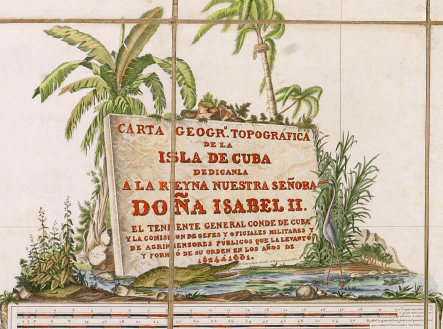 CARTA GEOGR.ᴬ TOPOGRAFICA
DE LA
ISLA DE CUBA
DEDICANLA
A LA REYNA NUESTRA SEÑORA
DOÑA ISABEL II.
EL TENIENTE GENERAL CONDE DE CUBA
Y LA COMISION DE GEFES Y OFICIALES MILITARES Y
DE AGRIMENSORES PUBLICOS QUE LA LEVANTÓ
Y FORMÓ DE SU ORDEN EN LOS AÑOS DE
1824 á 1831.